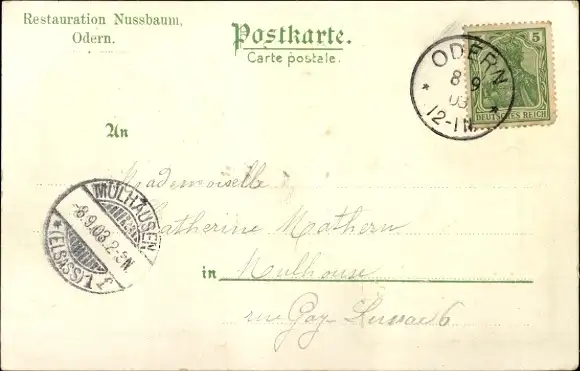 Restauration Nussbaum,
Odern.
Postkarte.
Carte postale.
5
DEUTSCHES REICH
ODERN
8 9
03
12-1N.
An
Mademoiselle
Catherine Mathern
in Mulhouse
rue Gay-Lussac 6
MÜLHAUSEN
-8.9.03.2-3N.
(ELSASS) 1